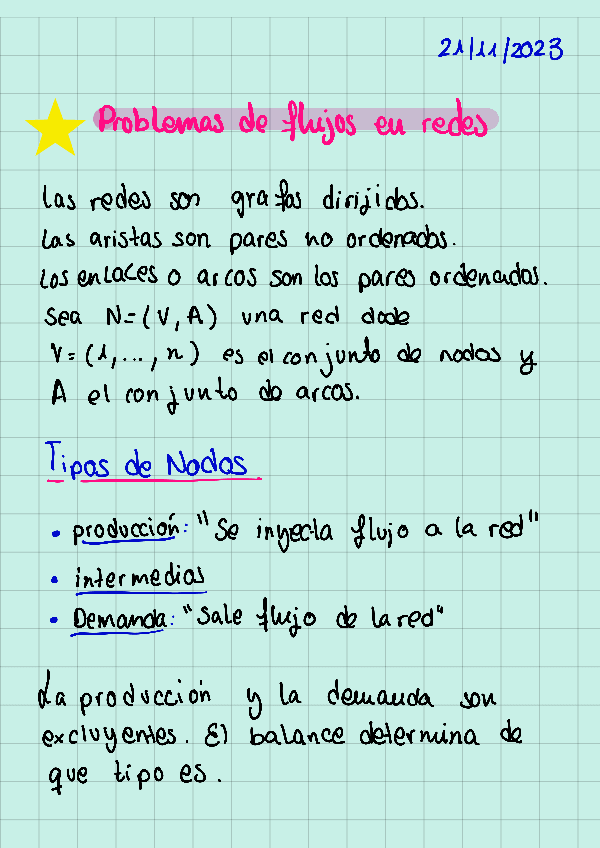 21/11/2023
Problemas de flujos en redes
Las redes son grafos dirijidos.
Las aristas son pares no ordenados.
Los enlaces o arcos son los pares ordenados.
Sea N=(V,A) una red dode
V=(1,...,n) es el conjunto de nodos y
A el conjunto de arcos.
Tipos de Nodos
• producción: "Se inyecta flujo a la red"
• intermedios
• Demanda: "Sale flujo de la red"
La producción y la demanda son
excluyentes. El balance determina de
que tipo es.